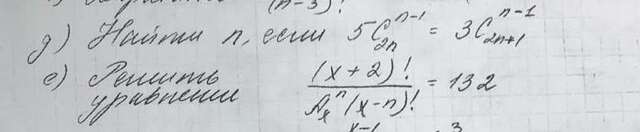 (n-3)!
д) Найти n, если 5C_{2n}^{n-1} = 3C_{2n+1}^{n-1}
е) Решить уравнение (x+2)! / A_x^n (x-n)! = 132
x-1 3